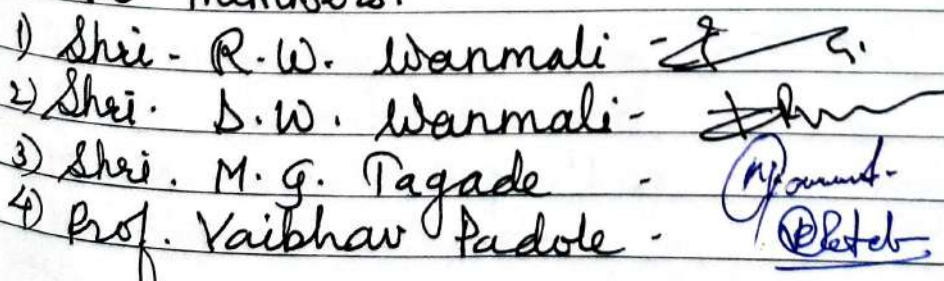 members.
1) Shri - R.W. Wanmali -
2) Shri. D.W. Wanmali -
3) Shri. M.G. Tagade -
4) Prof. Vaibhav Padole -